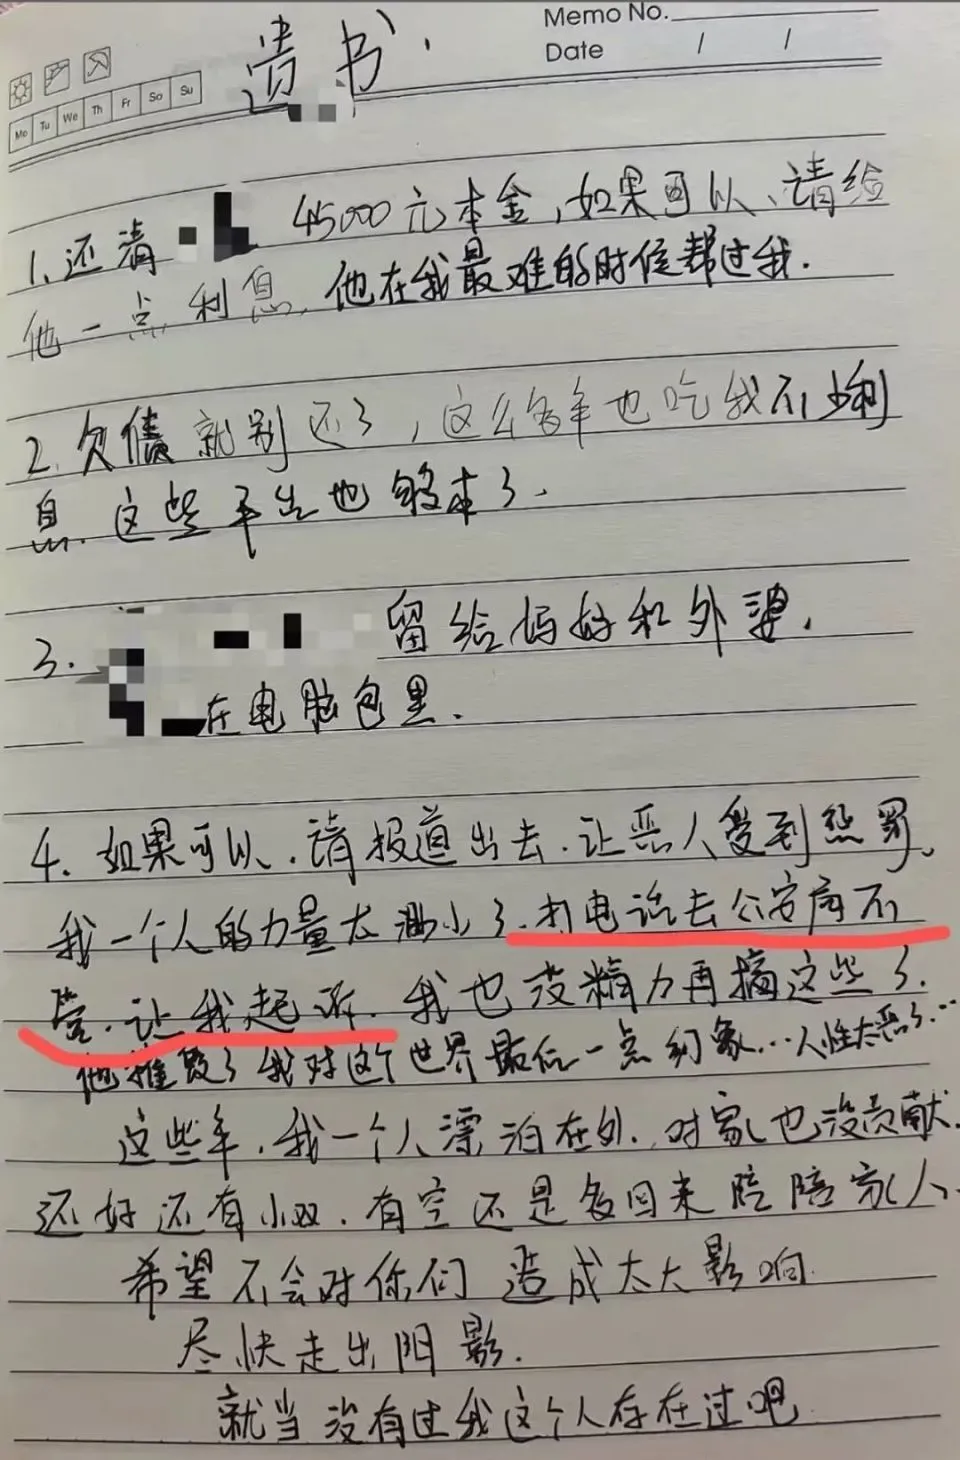 Memo No.
Date / /
Mo Tu We Th Fr Sa Su
遗书.
1. 还清 45000元本金,如果可以、请给
他一点利息,他在我最难的时候帮过我.
2. 欠债就别还了,这么多年也吃我不少利
息.这些平台也够本了.
3. 留给妈妈和外婆.
在电脑包里.
4. 如果可以.请报道出去.让恶人受到惩罚.
我一个人的力量太渺小了.打电话去公安局不
管.让我起诉.我也没精力再搞这些了.
他摧毁了我对这个世界最后一点幻象...人性太恶了...
这些年.我一个人漂泊在外.对家也没贡献.
还好还有小双.有空还是多回来陪陪家人.
希望不会对你们造成太大影响
尽快走出阴影.
就当没有过我这个人存在过吧